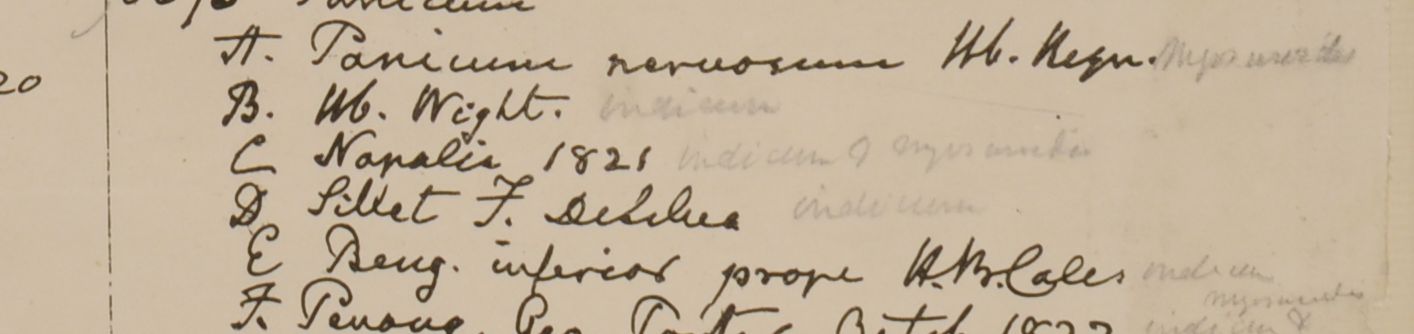 20
A. Panicum nervosum Hb. Heyn. myosuroides
B. Hb. Wight. indicum
C Napalia 1821 indicum & myosuroides
D Sillet F. De Silva indicum
E Beng. inferior prope H.B. Calc indicum
F. Penang, Geo. Porter 1822 indicum &